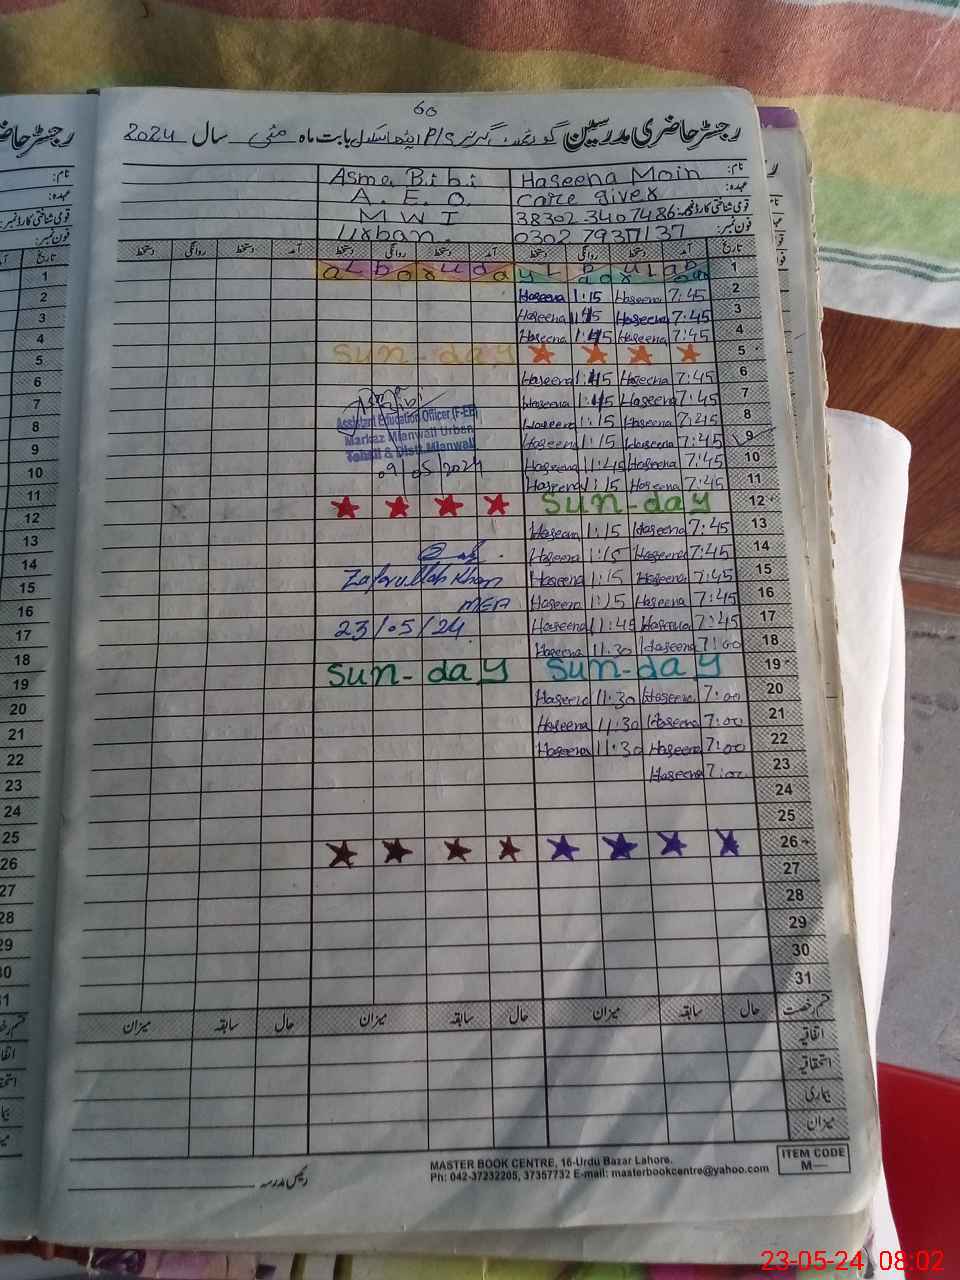 60
رجسٹر حاضری مدرسین گورنمنٹ گرلز P/S بابت ماہ مئی سال 2024
نام: Haseena Moin Asma Bibi
عہدہ: care giver A. E. O.
قومی شناختی کارڈ نمبر: 38302 3407486 M W I
فون نمبر: 0302 7937137 Urban
تاریخ آمد دستخط روانگی دستخط آمد دستخط روانگی دستخط آمد دستخط روانگی دستخط
1
2 7:45 Haseena 1:15 Haseena
3 7:45 Haseena Haseena
4 7:45 Haseena 1:45 Haseena
5 sun-day
6 7:45 Haseena 1:45 Haseena
7 7:45 Haseena 1:45 Haseena
8 7:45 Haseena 1:15 Haseena
9 7:45 Haseena 1:15 Haseena
10 7:45 Haseena 11:45 Haseena
11 7:45 Haseena 1:15 Haseena
Assistant Education Officer (F-EE)
Markaz Mianwali Urban
Tehsil & Distt. Mianwali
09/05/2024
12 sun-day
13 7:45 Haseena 1:15 Haseena
14 7:45 Haseena 1:15 Haseena
15 7:45 Haseena 1:15 Haseena
16 7:45 Haseena 1:15 Haseena
17 7:45 Haseena 11:45 Haseena
18 7:00 Haseena 11:30 Haseena
Zafarullah Khan
MEA
23/05/24
19 sun-day sun-day
20 7:00 Haseena 11:30 Haseena
21 7:00 Haseena 11:30 Haseena
22 7:00 Haseena 11:30 Haseena
23 7:00 Haseena
24
25
26
27
28
29
30
31
قسم رخصت حال سابقہ میزان حال سابقہ میزان حال سابقہ میزان
اتفاقیہ
استحقاقیہ
بیماری
میزان
رئیس مدرسہ
MASTER BOOK CENTRE, 16-Urdu Bazar Lahore.
Ph: 042-37232205, 37357732 E-mail: masterbookcentre@yahoo.com
ITEM CODE
M—
23-05-24 08:02